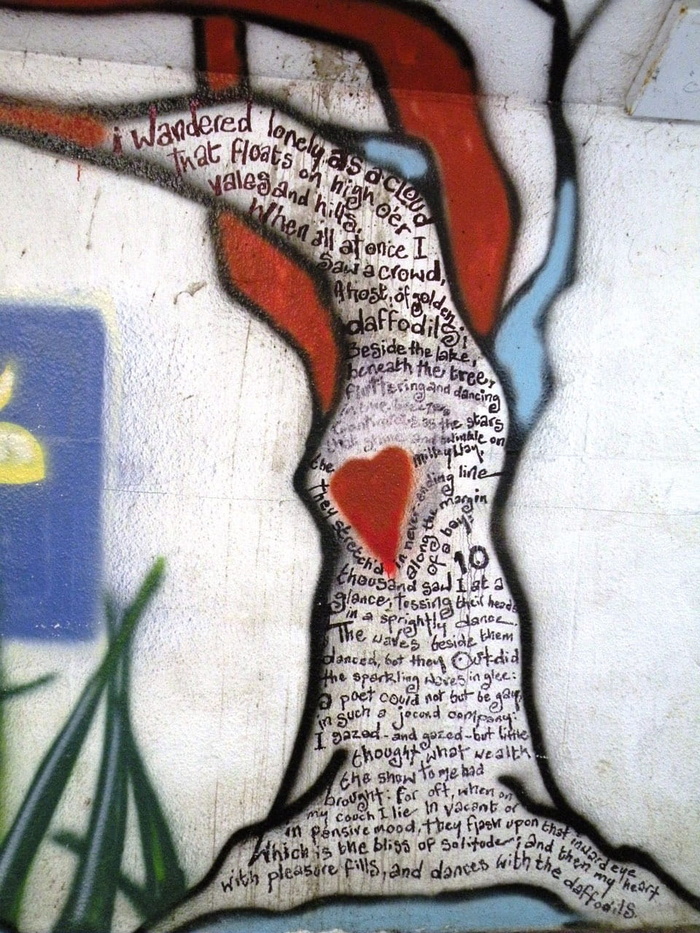 i wandered lonely as a cloud
that floats on high o'er
vales and hills,
When all at once I
Saw a crowd,
A host, of golden
daffodils;
Beside the lake,
beneath the trees,
fluttering and dancing
in the breeze
Continuous as the stars
that shine and twinkle on
the milky way,
They stretch'd in never-ending line
along the margin
of a bay:
10
thousand saw I at a
glance, tossing their heads
in a sprightly dance
The waves beside them
danced, but they Outdid
the sparkling waves in glee:
a poet could not but be gay
in such a jocund company:
I gazed-and gazed-but little
thought what wealth
the show to me had
brought: for oft, when on
my couch I lie In vacant or
in pensive mood, they flash upon that inward eye
Which is the bliss of solitude; and then my heart
with pleasure fills, and dances with the daffodils.